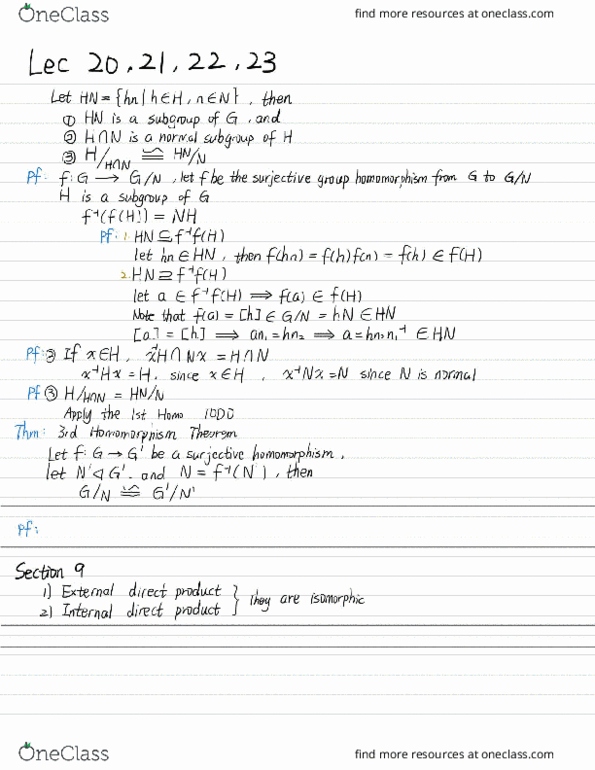 OneClass find more resources at oneclass.com
Lec 20, 21, 22, 23
Let HN = {hn | h∈H, n∈N}, then
① HN is a subgroup of G, and
② H∩N is a normal subgroup of H
③ H/H∩N ≅ HN/N
Pf: f: G → G/N, let f be the surjective group homomorphism from G to G/N
H is a subgroup of G
f⁻¹(f(H)) = NH
Pf: 1. HN ⊆ f⁻¹f(H)
let hn ∈ HN, then f(hn) = f(h)f(n) = f(h) ∈ f(H)
2. HN ⊇ f⁻¹f(H)
let a ∈ f⁻¹f(H) ⟹ f(a) ∈ f(H)
Note that f(a) = [h] ∈ G/N = hN ∈ HN
[a] = [h] ⟹ an₁ = hn₂ ⟹ a = hn₂n₁⁻¹ ∈ HN
Pf: ② If x∈H, x⁻¹H∩Nx = H∩N
x⁻¹Hx = H, since x∈H, x⁻¹Nx = N since N is normal
Pf ③ H/H∩N = HN/N
Apply the 1st Homo
Thm: 3rd Homomorphism Theorem
Let f: G → G' be a surjective homomorphism,
let N' ◁ G', and N = f⁻¹(N'), then
G/N ≅ G'/N'
Pf:
Section 9
1) External direct product
2) Internal direct product } They are isomorphic
OneClass find more resources at oneclass.com